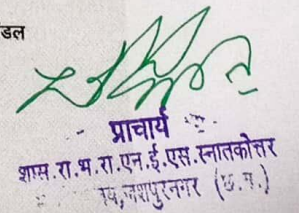 डल
प्राचार्य
शास.रा.भ.रा.एन.ई.एस.स्नातकोत्तर
जशपुरनगर (छ.ग.)